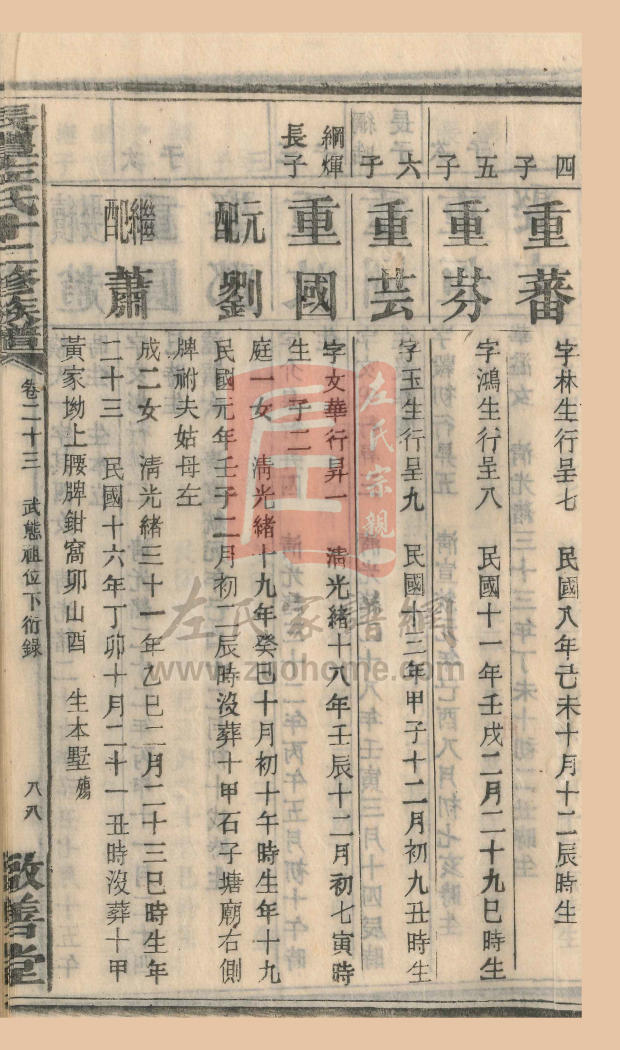 四子
重蕃
字林生行呈七 民國八年己未十月十二辰時生
五子
重芬
字鴻生行呈八 民國十一年壬戌二月二十九巳時生
六子
重芸
字玉生行呈九 民國十三年甲子十二月初九丑時生
綱煇
長子
重國
字文華行昇一 清光緒十八年壬辰十二月初七寅時
生 子二
元配
劉
庭一女 清光緒十九年癸巳十月初十午時生年十九
民國元年壬子二月初二辰時沒葬十甲石子塘廟右側
碑祔夫姑母左
繼配
蕭
成二女 清光緒三十一年乙巳二月二十三巳時生年
二十三 民國十六年丁卯十月二十一丑時沒葬十甲
黃家坳上腰牌鉗窩卯山酉 生本墅殤
左氏十二修族譜
卷二十三
武態祖位下衍錄
八八
敬善堂
左氏宗親
左氏家譜網
www.zuohome.com